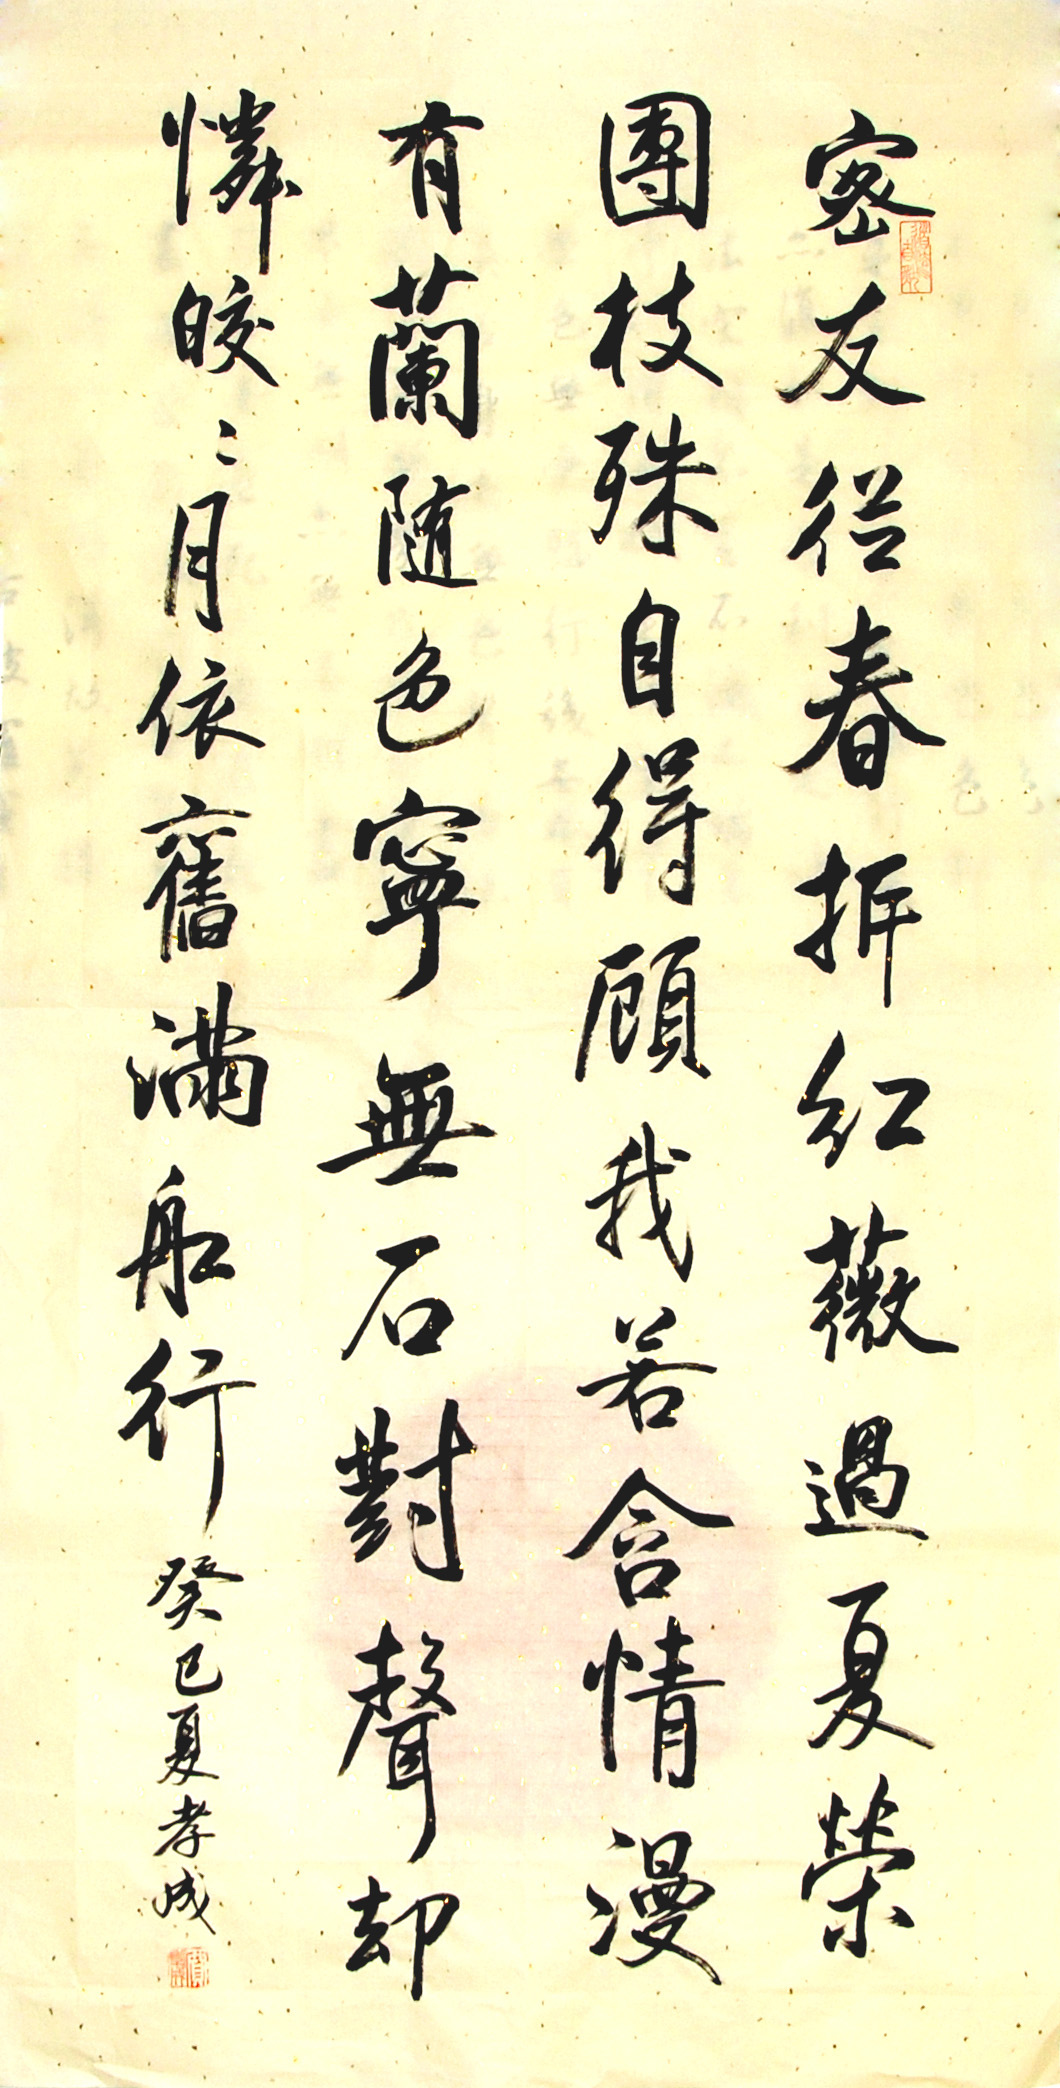 密友従春拆红薇過夏榮
團枝殊自得顾我若含情漫
有蘭随色寧無石對聲却
憐皎〻月依舊滿船行
癸巳夏孝成